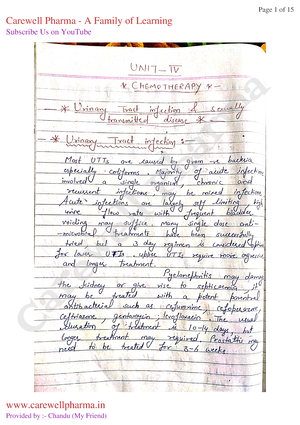 Carewell Pharma - A Family of Learning
Page 1 of 15
Subscribe Us on YouTube
UNIT-IV
* CHEMOTHERAPY * -
* Urinary Tract infection & sexually
transmitted disease *
* Urinary Tract infection :-
Most UTIs are caused by gram -ve bacteria
especially coliforms. Majority of acute infection
involved a single organism, chronic and
recurrent infections may be mixed infection
Acute infections are largely self limiting high
urine flow rates with frequent bladder
voiding may suffice. Many single dose anti
-microbial treatment have been successfully
tried, but a 3 day regimen is considered
for lower UTIs. upper UTIs require more
and longer treatment.
Pyelonephritis may damage
the kidney or give rise to septicaemia,
may be treated with a potent parenteral
antibacterial such as cefuroxime, cefoperazone,
ceftriaxone, gentamycin, The usual
duration of treatment is 10-14 days but
longer treatment may required. Prostatitis may
need to be treated for 3-6 weeks.
Carewell Pharma
www.carewellpharma.in
Provided by :- Chandu (My Friend)